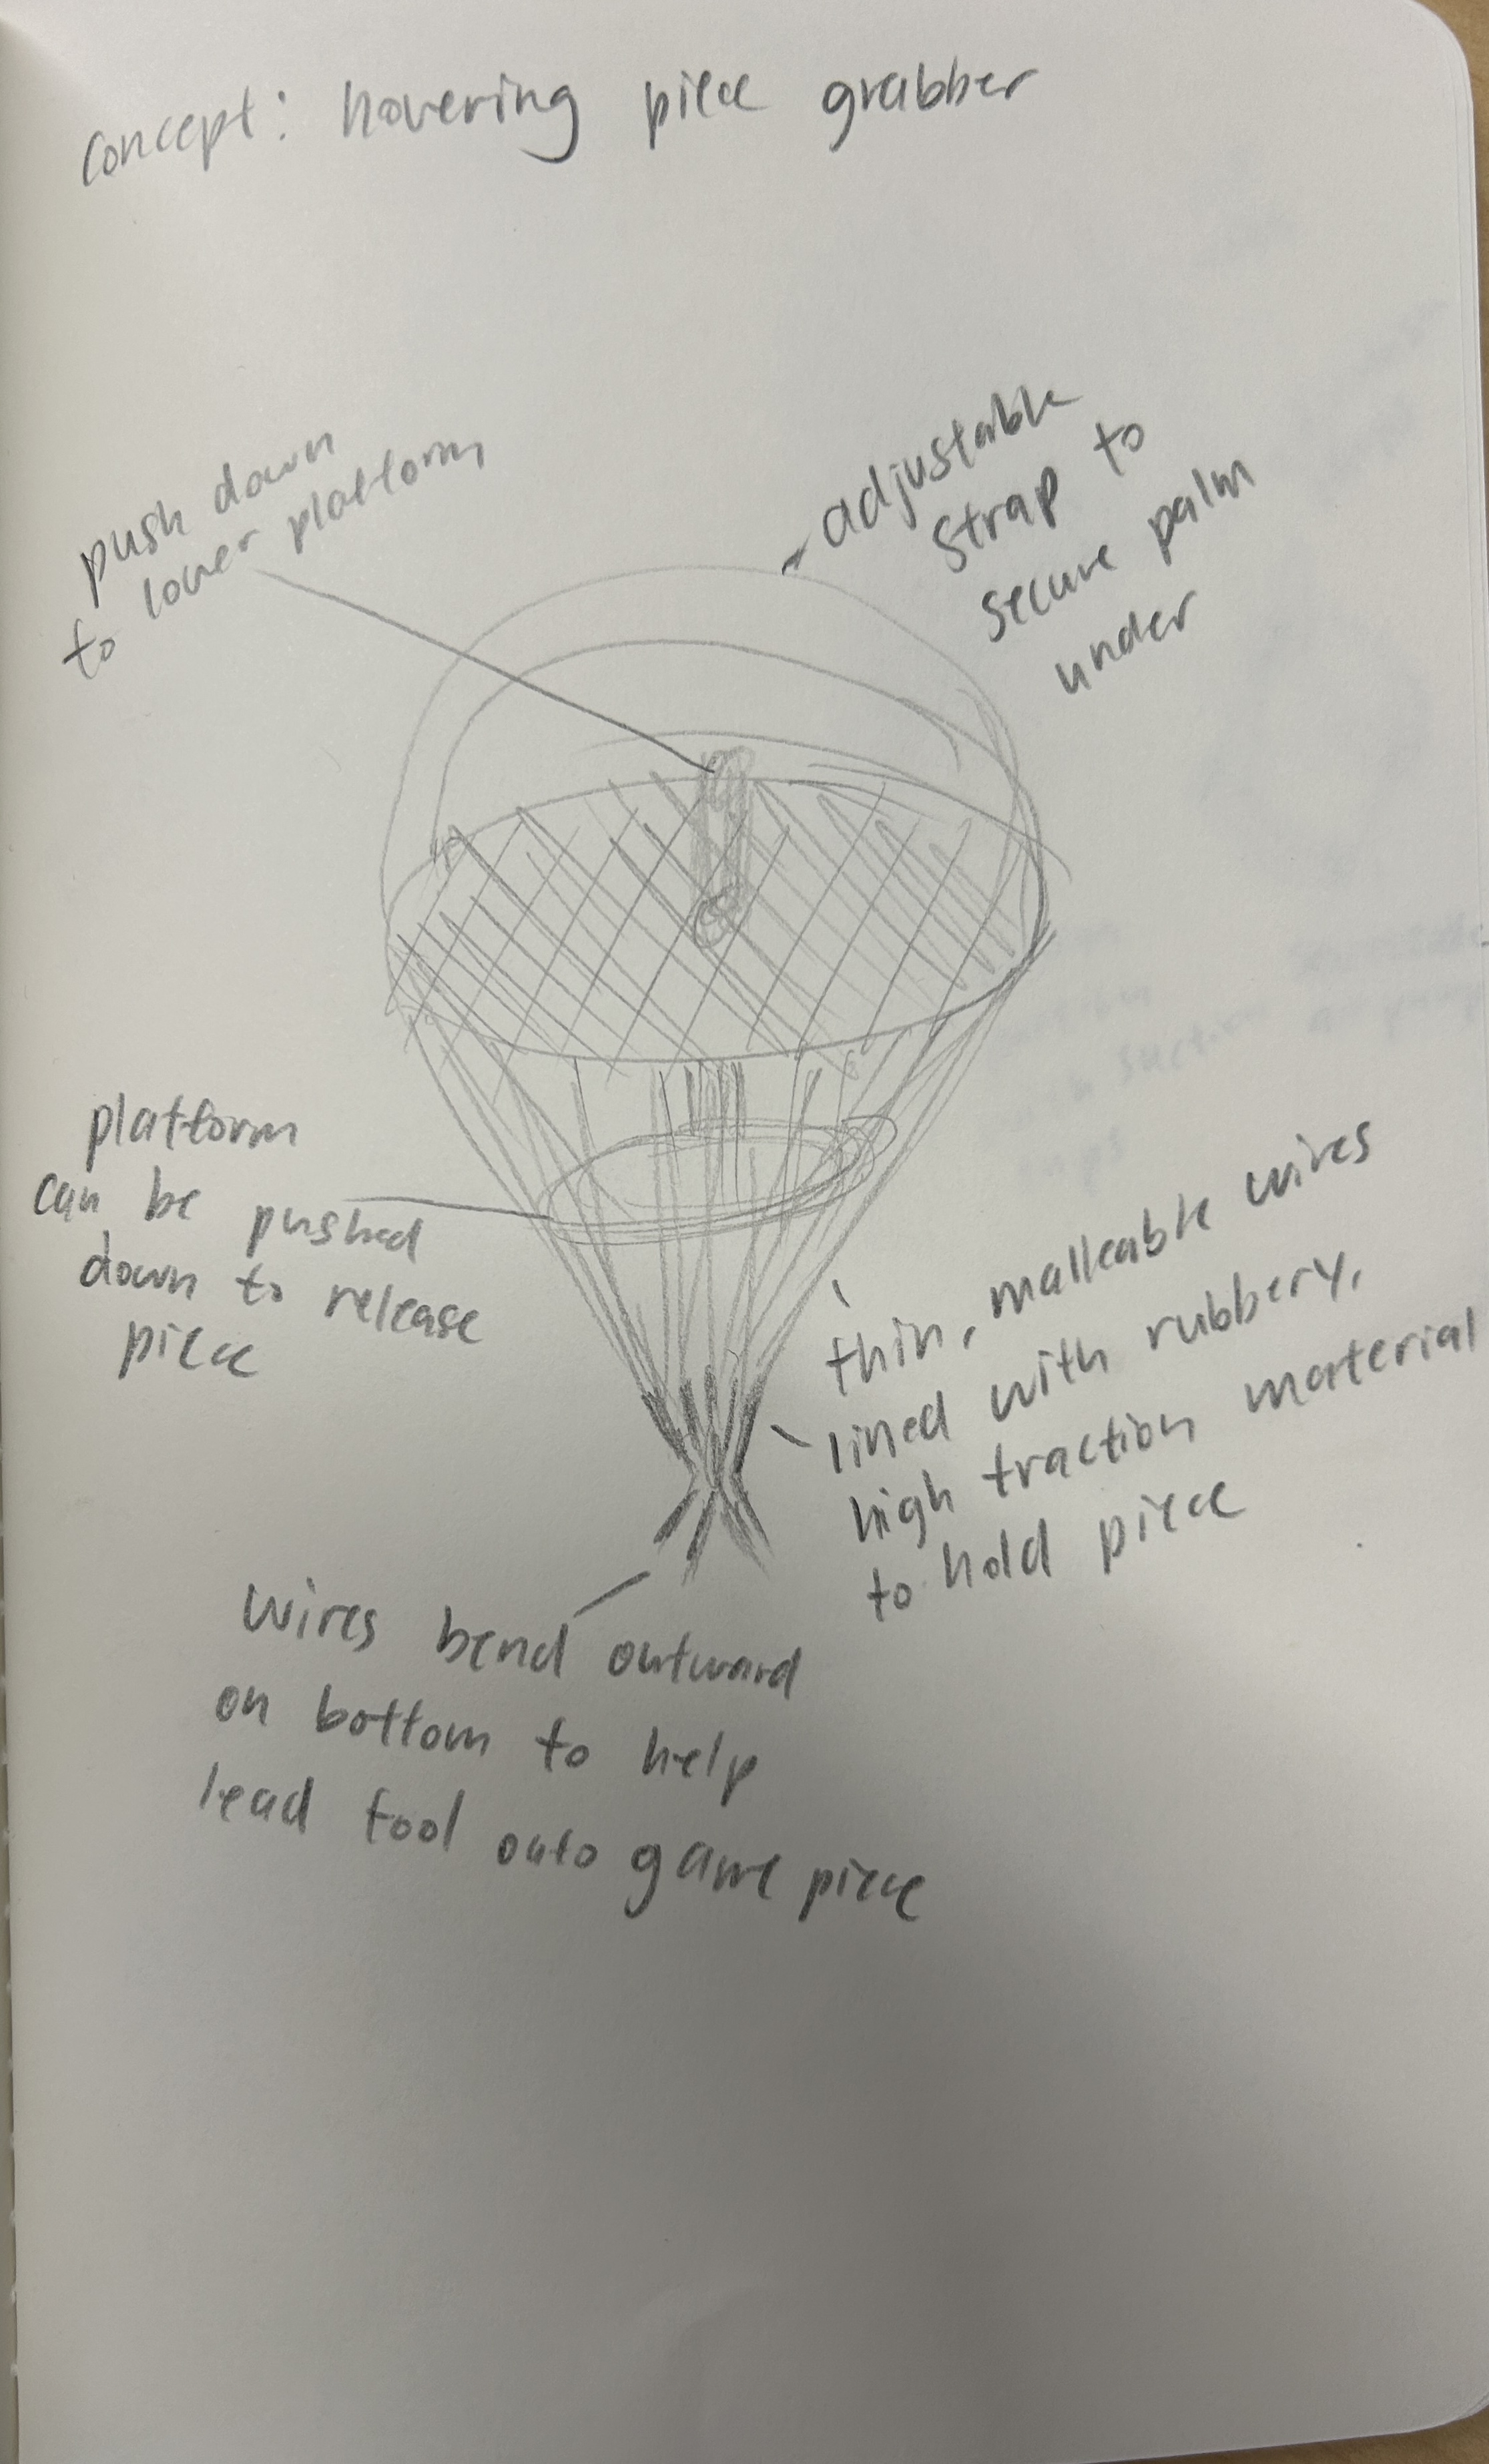 concept: hovering piece grabber
push down
to lower platform
adjustable
strap to
secure palm
under
platform
can be pushed
down to release
piece
thin, malleable wires
lined with rubbery,
high traction material
to hold piece
wires bend outward
on bottom to help
lead tool onto game piece